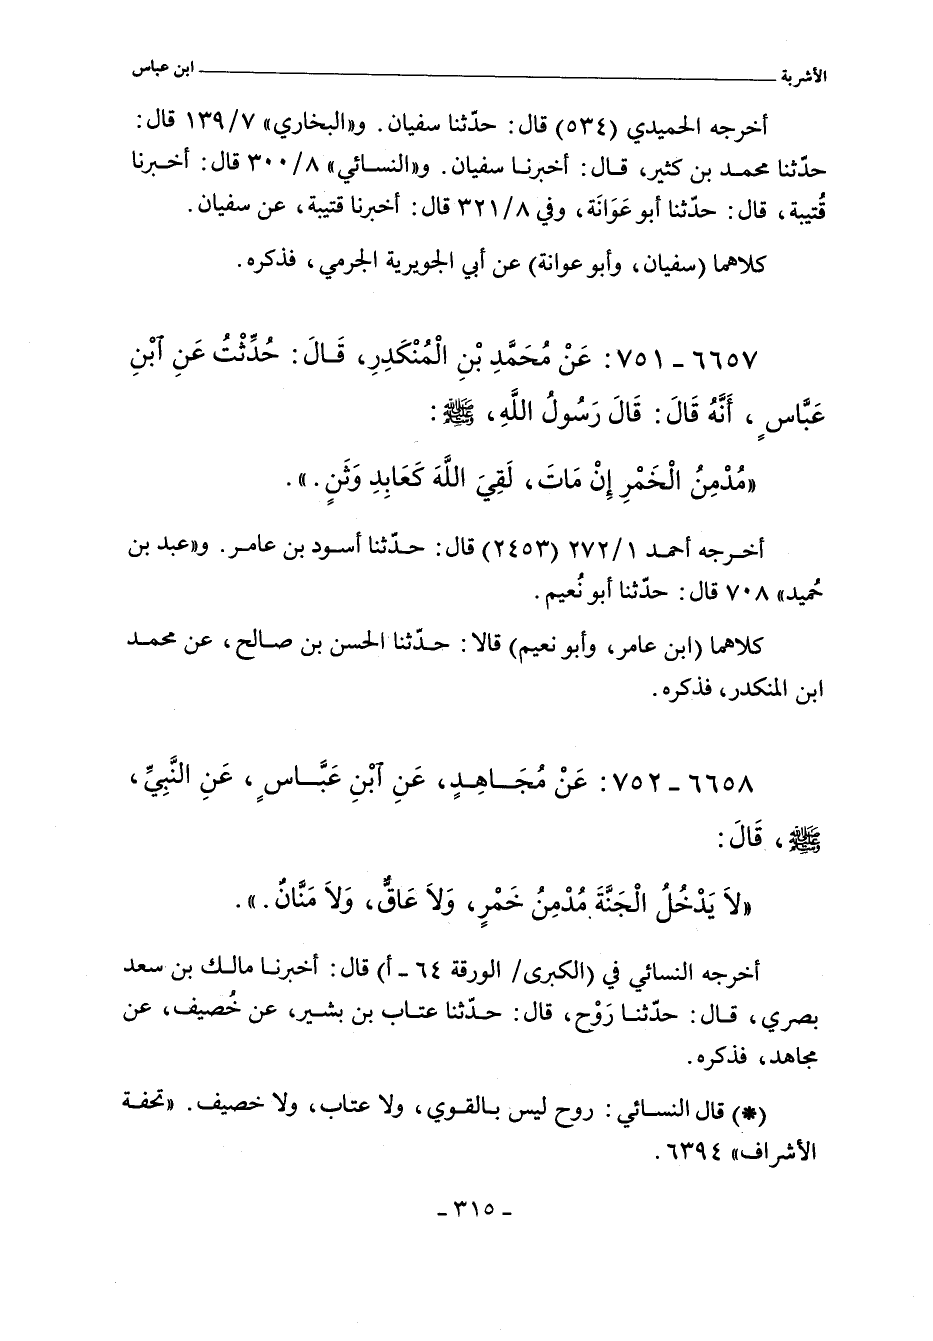 الأشربة ــــــــــــــــــــــــ ابن عباس
أخرجه الحميدي (٥٣٤) قال: حدّثنا سفيان. و«البخاري» ١٣٩/٧ قال:
حدّثنا محمد بن كثير، قال: أخبرنا سفيان. و«النسائي» ٣٠٠/٨ قال: أخبرنا
قُتيبة، قال: حدّثنا أبو عَوَانَة، وفي ٣٢١/٨ قال: أخبرنا قتيبة، عن سفيان.
كلاهما (سفيان، وأبو عوانة) عن أبي الجويرية الجرمي، فذكره.
٦٦٥٧ ـ ٧٥١: عَنْ مُحَمَّدِ بْنِ الْمُنْكَدِرِ، قَالَ: حُدِّثْتُ عَنِ ٱبْنِ
عَبَّاسٍ، أَنَّهُ قَالَ: قَالَ رَسُولُ اللَّهِ، ﷺ:
«مُدْمِنُ الْخَمْرِ إِنْ مَاتَ، لَقِيَ اللَّهَ كَعَابِدِ وَثَنٍ.».
أخرجه أحمد ٢٧٢/١ (٢٤٥٣) قال: حدّثنا أسود بن عامر. و«عبد بن
حُميد» ٧٠٨ قال: حدّثنا أبو نُعيم.
كلاهما (ابن عامر، وأبو نعيم) قالا: حدّثنا الحسن بن صالح، عن محمد
ابن المنكدر، فذكره.
٦٦٥٨ ـ ٧٥٢: عَنْ مُجَاهِدٍ، عَنِ ٱبْنِ عَبَّاسٍ، عَنِ النَّبِيِّ،
ﷺ، قَالَ:
«لاَ يَدْخُلُ الْجَنَّةَ مُدْمِنُ خَمْرٍ، وَلاَ عَاقٌّ، وَلاَ مَنَّانٌ.».
أخرجه النسائي في (الكبرى/ الورقة ٦٤ ـ أ) قال: أخبرنا مالك بن سعد
بصري، قال: حدّثنا رَوْح، قال: حدّثنا عتاب بن بشير، عن خُصيف، عن
مجاهد، فذكره.
(*) قال النسائي: روح ليس بالقوي، ولا عتاب، ولا خصيف. «تحفة
الأشراف» ٦٣٩٤.
ـ ٣١٥ ـ